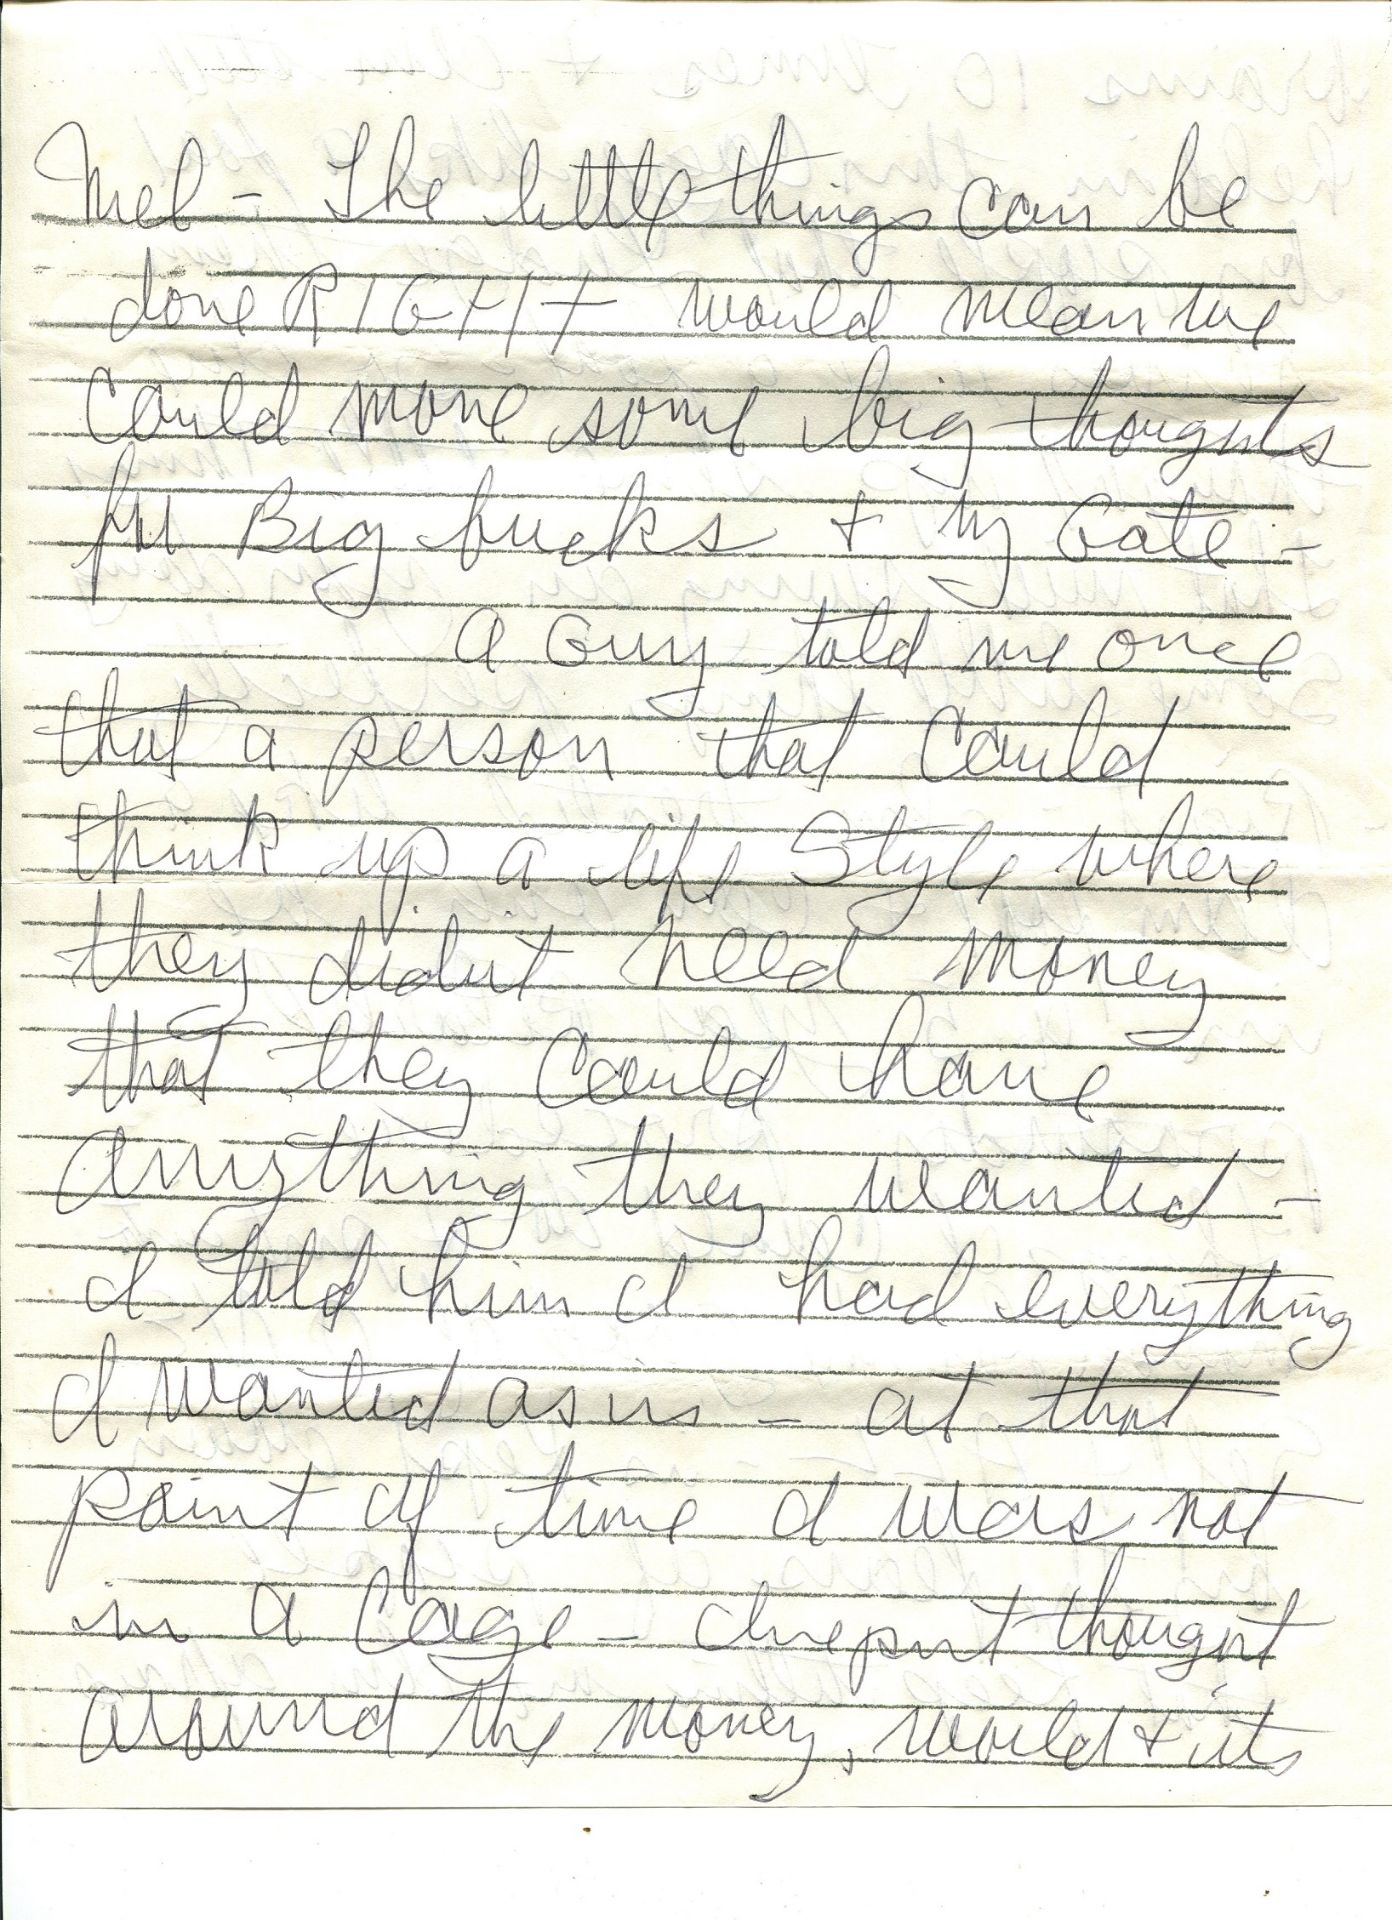 Mel - The little things can be
done RIGHT would mean we
could move some big thoughts
for Big bucks + by Gate -
a Guy told me once
that a person that could
think up a life Style where
they didnt need money
that they could have
anything they wanted -
I told him I had everything
I wanted as is - at that
point of time I was not
in a Cage - Ive put thought
around the money, world + its